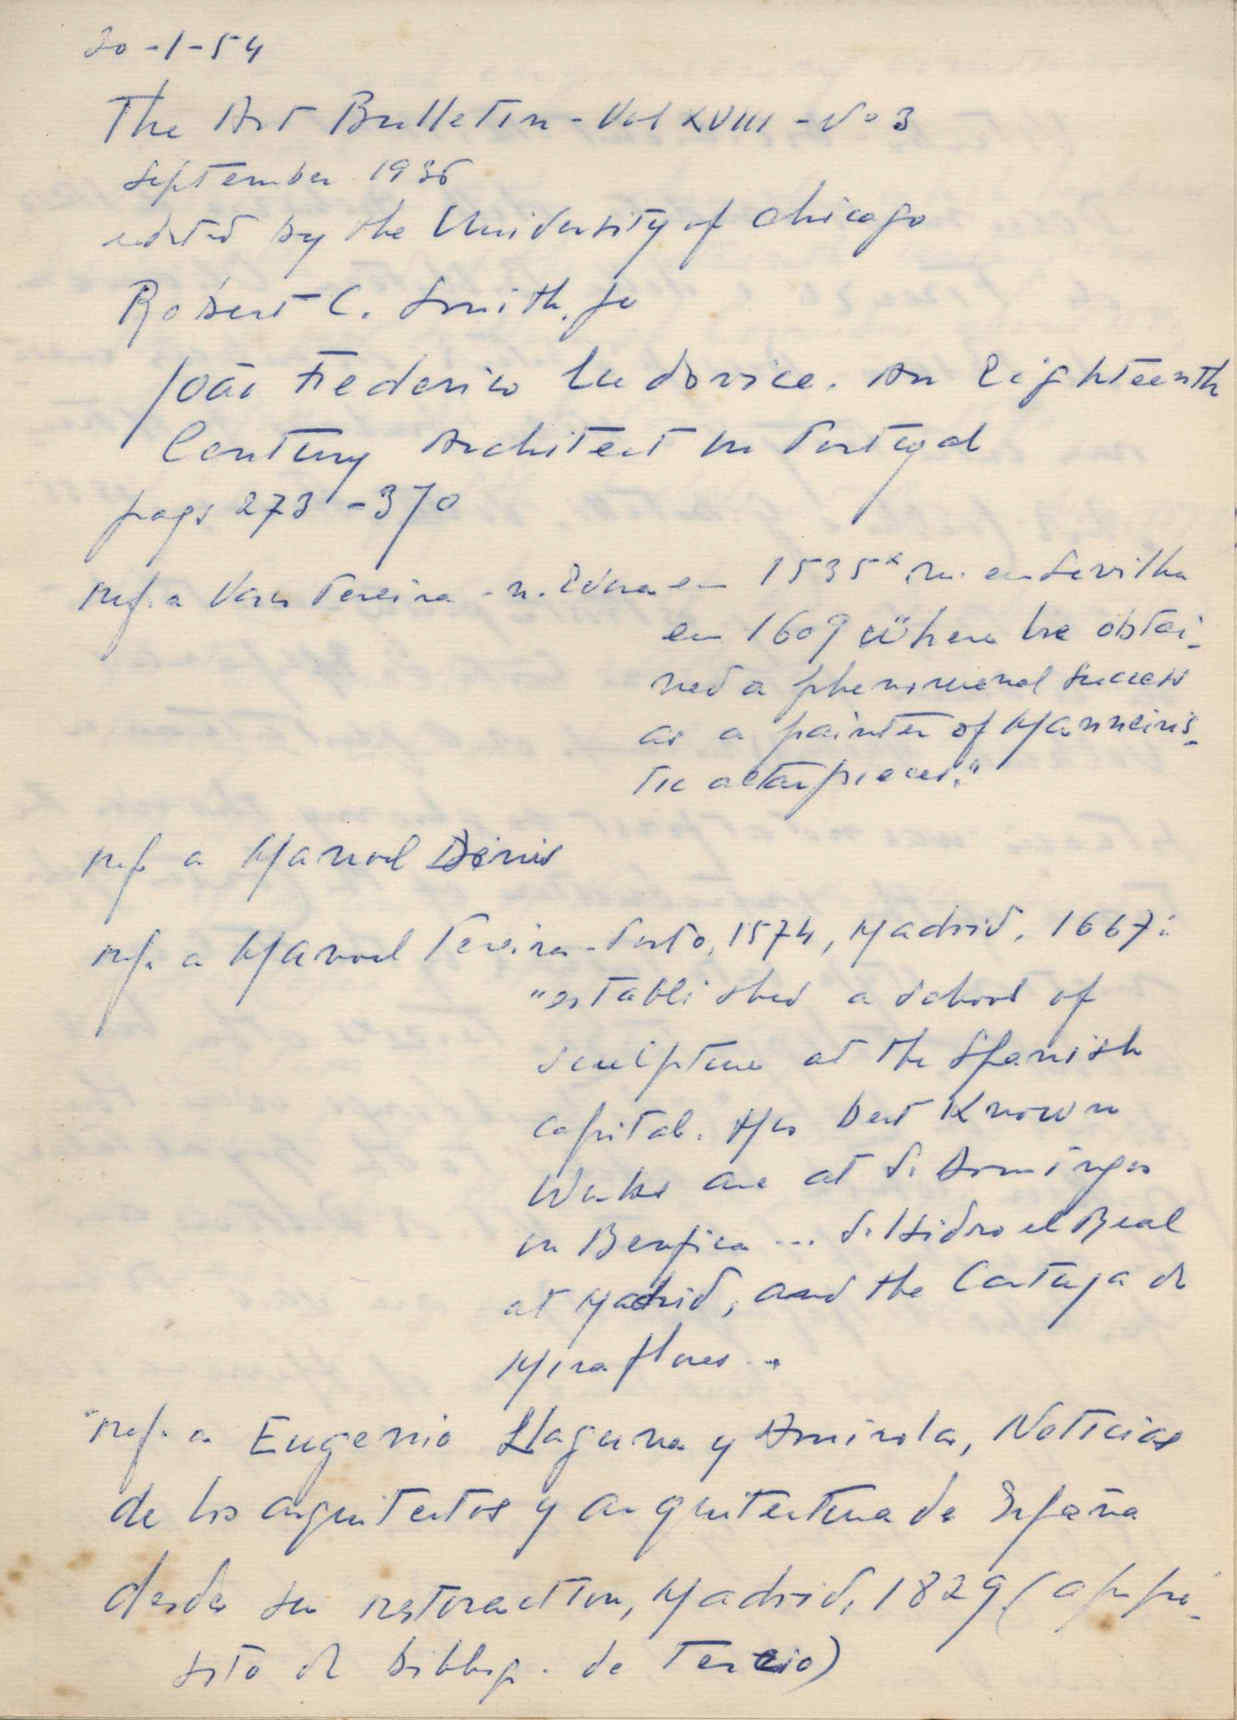 20-1-54
The Art Bulletin - Vol XVIII - No 3
September 1936
edited by the University of Chicago
Robert C. Smith, Jr
João Frederico Ludovice. An Eighteenth
Century Architect in Portugal
pags 273 - 370
ref. a Vasco Pereira - n. Évora em 1535 m. em Sevilha
em 1609 "where he obtai-
ned a phenomenal success
as a painter of Manneris-
tic altarpieces."
ref. a Manoel Dinis
ref. a Manoel Pereira - Porto, 1574, Madrid, 1667:
"established a school of
sculpture at the Spanish
capital. His best known
Works are at S. Domingos
in Benfica ... S. Isidro el Real
at Madrid, and the Cartuja de
Miraflores ..
ref. a Eugenio Llaguna y Amirola, Noticias
de los arquitectos y arquitectura de España
desde su restauration, Madrid, 1829 (a propó-
sito de bibliog. de Terzio)